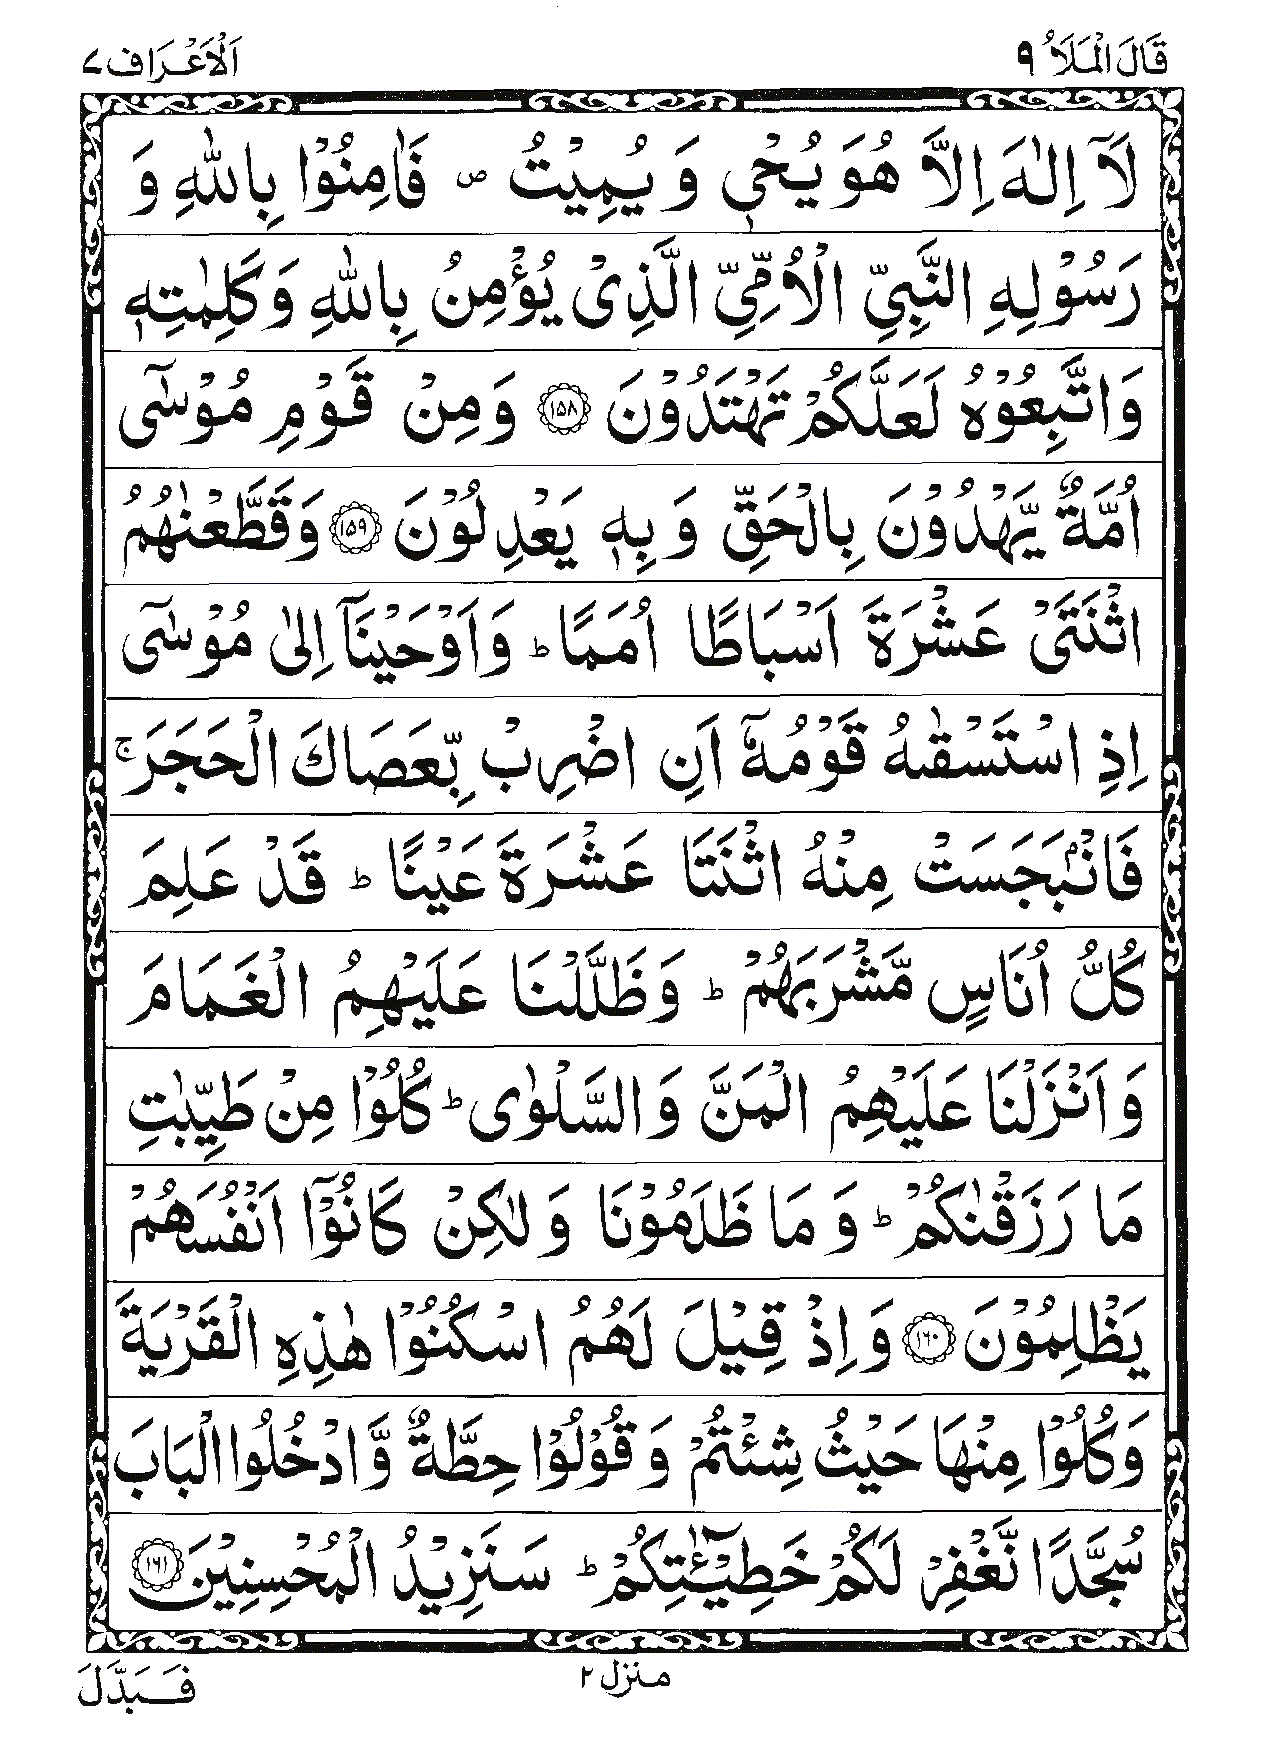 قَالَ الْمَلَاُ ٩
اَلْاَعْرَاف ٧
لَاۤ اِلٰهَ اِلَّا هُوَ يُحْيٖ وَ يُمِيْتُ ۪ فَاٰمِنُوْا بِاللّٰهِ وَ
رَسُوْلِهِ النَّبِيِّ الْاُمِّيِّ الَّذِيْ يُؤْمِنُ بِاللّٰهِ وَ كَلِمٰتِهٖ
وَاتَّبِعُوْهُ لَعَلَّكُمْ تَهْتَدُوْنَ ۝۱۵۸ وَمِنْ قَوْمِ مُوْسٰۤى
اُمَّةٌ يَّهْدُوْنَ بِالْحَقِّ وَ بِهٖ يَعْدِلُوْنَ ۝۱۵۹ وَقَطَّعْنٰهُمُ
اثْنَتَيْ عَشْرَةَ اَسْبَاطًا اُمَمًا ؕ وَاَوْحَيْنَاۤ اِلٰى مُوْسٰۤى
اِذِ اسْتَسْقٰىهُ قَوْمُهٗۤ اَنِ اضْرِبْ بِّعَصَاكَ الْحَجَرَ ۚ
فَانْۢبَجَسَتْ مِنْهُ اثْنَتَا عَشْرَةَ عَيْنًا ؕ قَدْ عَلِمَ
كُلُّ اُنَاسٍ مَّشْرَبَهُمْ ؕ وَظَلَّلْنَا عَلَيْهِمُ الْغَمَامَ
وَ اَنْزَلْنَا عَلَيْهِمُ الْمَنَّ وَ السَّلْوٰى ؕ كُلُوْا مِنْ طَيِّبٰتِ
مَا رَزَقْنٰكُمْ ؕ وَ مَا ظَلَمُوْنَا وَ لٰكِنْ كَانُوْۤا اَنْفُسَهُمْ
يَظْلِمُوْنَ ۝۱۶۰ وَ اِذْ قِيْلَ لَهُمُ اسْكُنُوْا هٰذِهِ الْقَرْيَةَ
وَكُلُوْا مِنْهَا حَيْثُ شِئْتُمْ وَ قُوْلُوْا حِطَّةٌ وَّ ادْخُلُوا الْبَابَ
سُجَّدًا نَّغْفِرْ لَكُمْ خَطِيْٓـٰٔتِكُمْ ؕ سَنَزِيْدُ الْمُحْسِنِيْنَ ۝۱۶۱
منزل ٢
فَبَدَّلَ